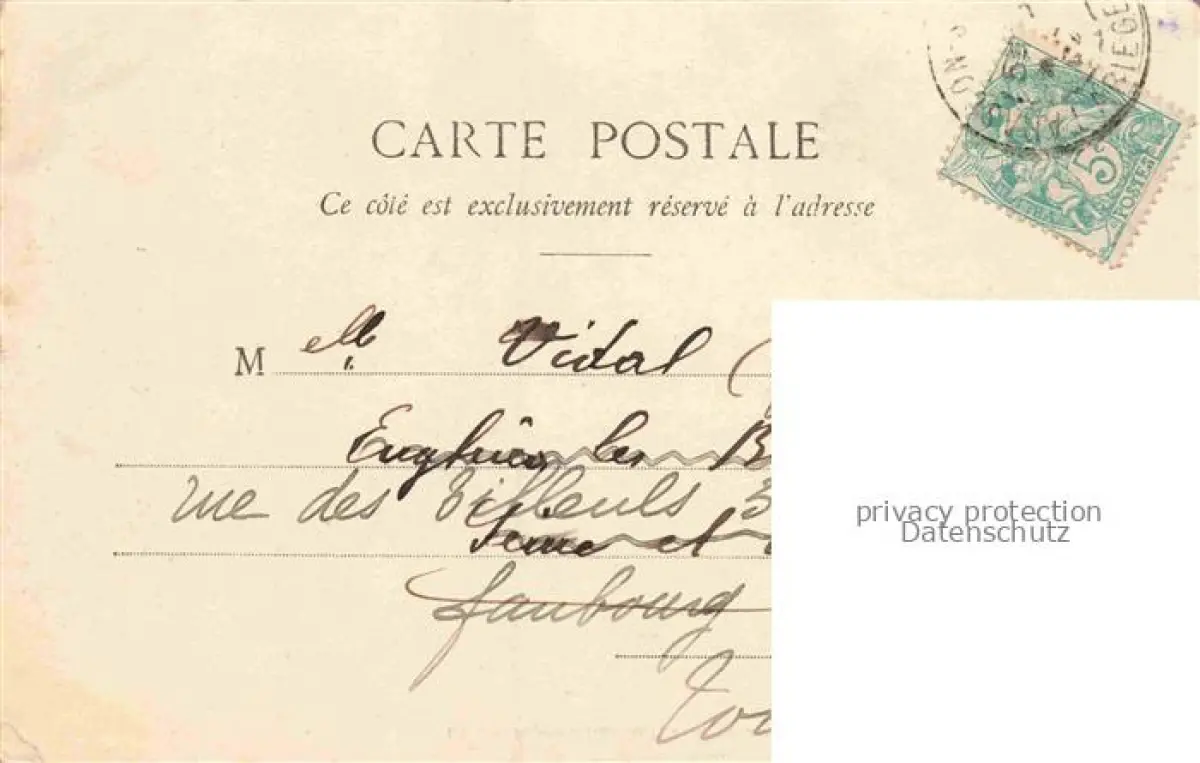 CARTE POSTALE
Ce côté est exclusivement réservé à l'adresse
5
POSTES
M elle Vidal (
Enghien les B
rue des Tilleuls 3
Seine et
faubourg
Tou
privacy protection
Datenschutz